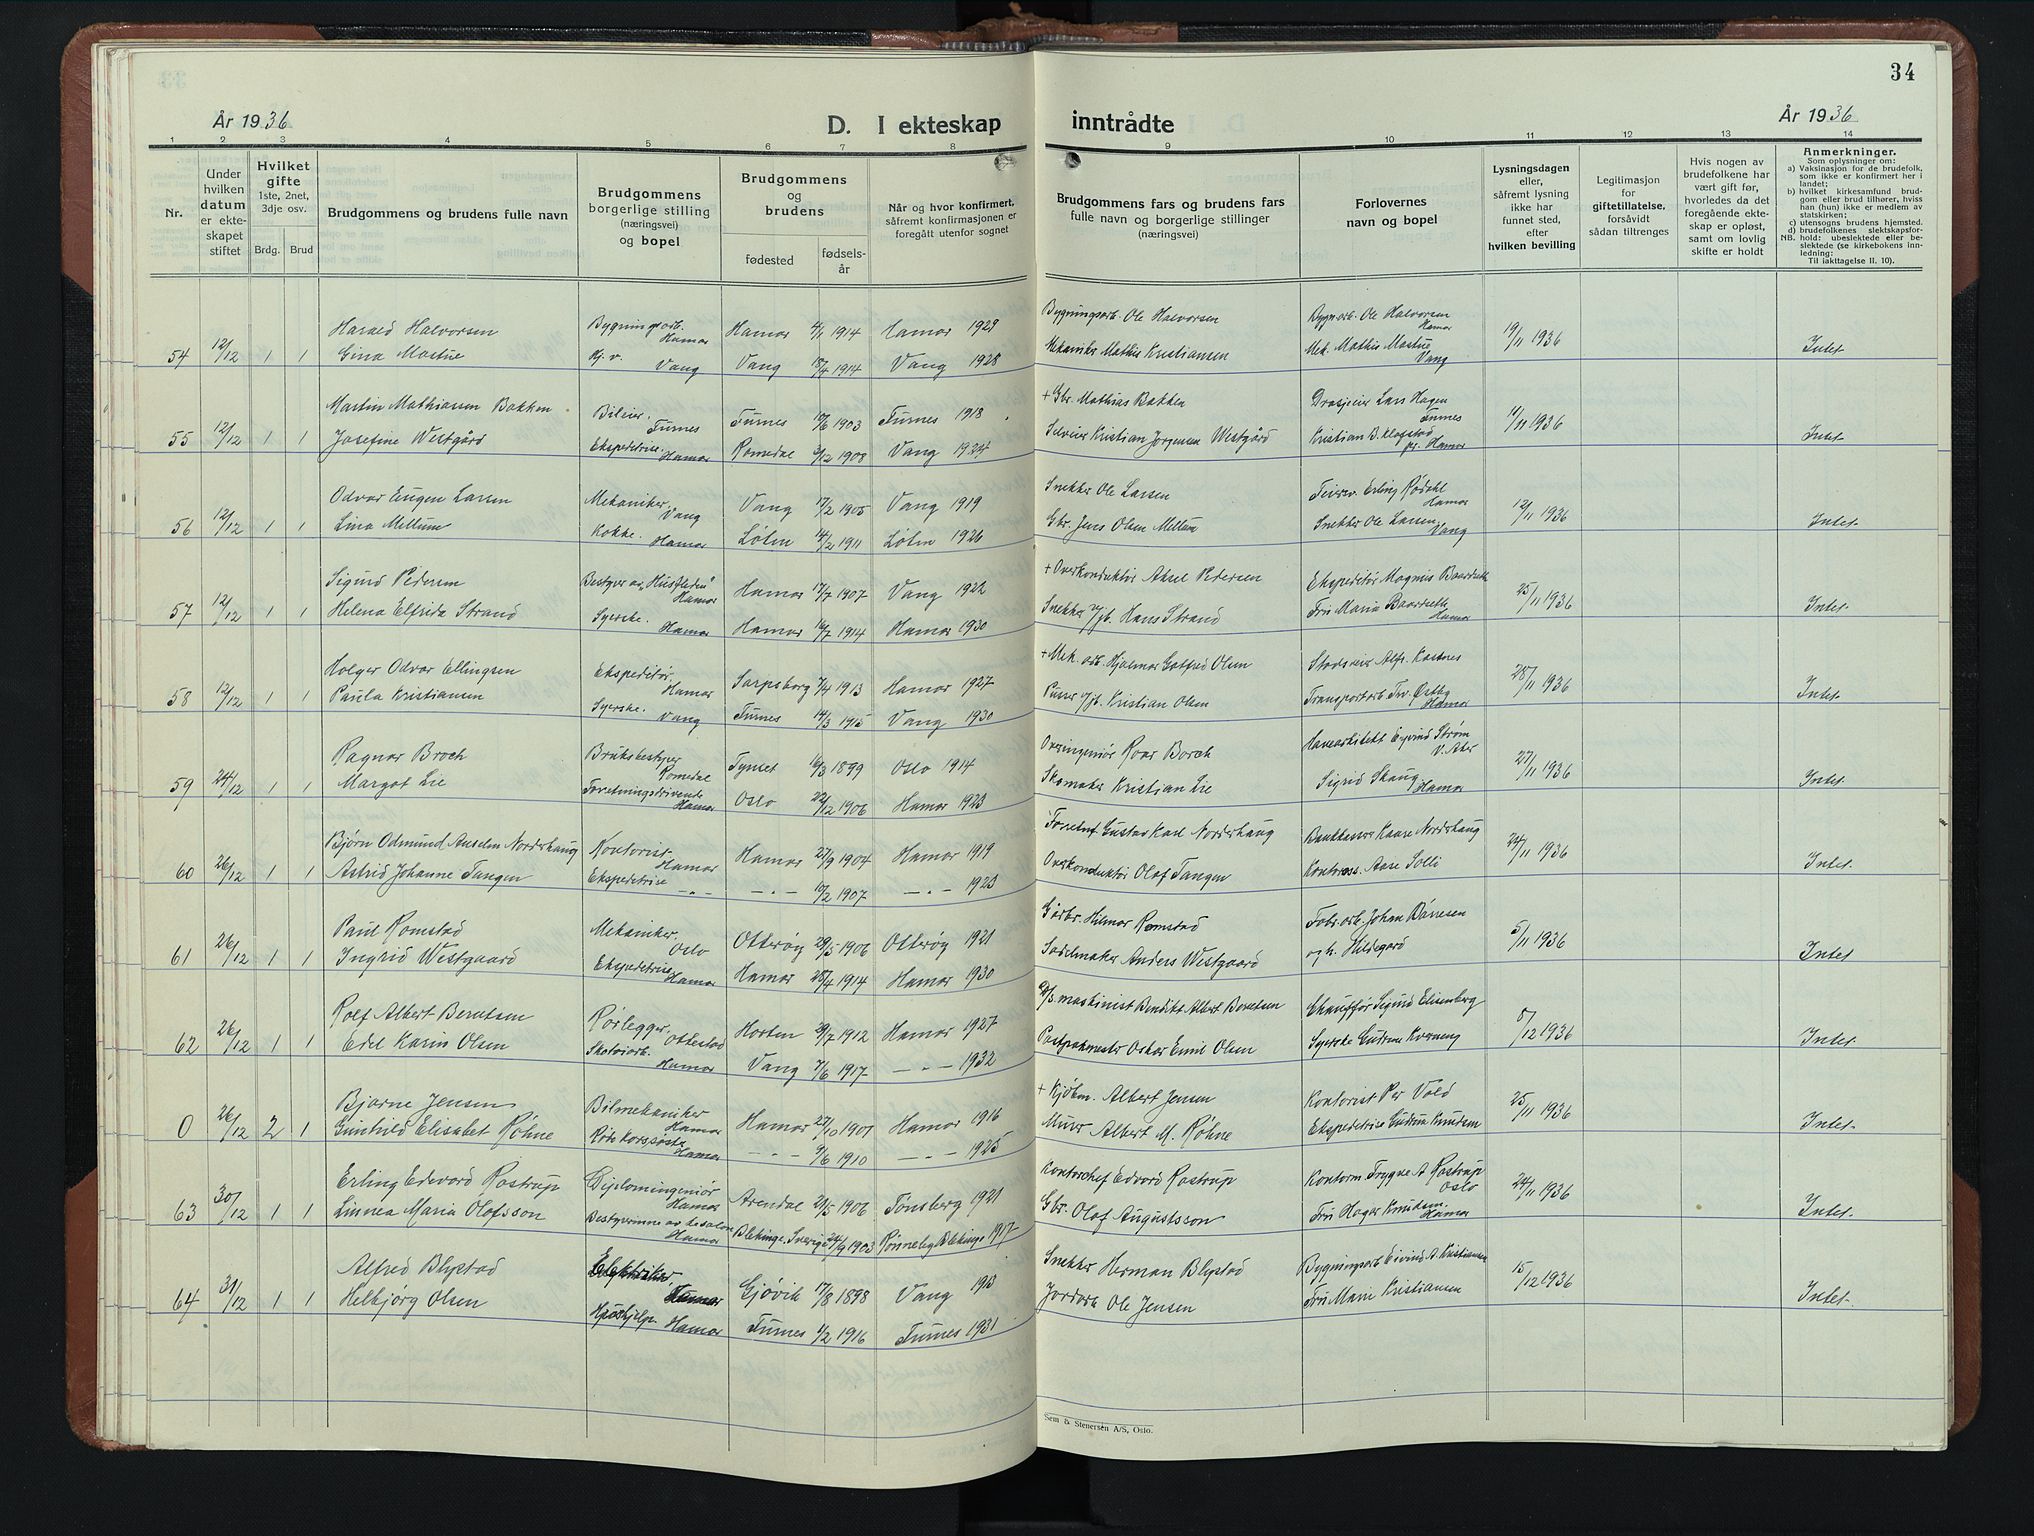 34
År 1936
D. I ekteskap inntrådte
År 1936
1 2 3 4 5 6 7 8 9 10 11 12 13 14
Nr.
Under hvilken datum er ekteskapet stiftet
Hvilket gifte 1ste, 2net, 3dje osv.
Brdg. Brud
Brudgommens og brudens fulle navn
Brudgommens borgerlige stilling (næringsvei) og bopel
Brudgommens og brudens
fødested
fødselsår
Når og hvor konfirmert, såfremt konfirmasjonen er foregått utenfor sognet
Brudgommens fars og brudens fars fulle navn og borgerlige stillinger (næringsvei)
Forlovernes navn og bopel
Lysningsdagen eller, såfremt lysning ikke har funnet sted, efter hvilken bevilling
Legitimasjon for giftetillatelse, forsåvidt sådan tiltrenges
Hvis nogen av brudefolkene har vært gift før, hvorledes da det foregående ekteskap er opløst, samt om lovlig skifte er holdt
Anmerkninger.
Som oplysninger om:
a) Vaksinasjon for de brudefolk, som ikke er konfirmert her i landet;
b) hvilket kirkesamfund brudgom eller brud tilhører, hvis han (hun) ikke er medlem av statskirken;
c) utensogns brudens hjemsted.
d) brudefolkenes slektskapsforhold: ubeslektede eller beslektede (se kirkebokens innledning:
NB. Til iakttagelse II. 10).
Harald Halvorsen Bygningsarb. Hamar Hamar 4/11 1914 Hamar 1929 Bygningsarb. Ole Halvorsen Bygn.arb. Ole Halvorsen Hamar
54 12/12 1 1 Gina Mostue Hj. v. Vang Vang 18/4 1914 Vang 1928 Mekaniker Mathis Kristiansen Mek. Mathis Mostue Vang 19/11 1936 Intet
Martin Mathiassen Bakken Bileier. Furnes Furnes 10/6 1903 Furnes 1918 + Gbr. Mathias Bakken Drosjeeier Lars Hagen Furnes
55 12/12 1 1 Josefine Westgård Ekspeditrise. Hamar Romedal 3/12 1908 Vang 1924 Selveier Kristian Jørgensen Westgård Kristian B. Klafstad pr. Hamar 11/11 1936 Intet
Odvar Eugen Larsen Mekaniker. Vang Vang 17/2 1905 Vang 1919 Snekker Ole Larsen Erling Rødahl Hamar
56 12/12 1 1 Lina Mellum Kokke. Hamar Løten 14/2 1911 Løten 1926 Gbr. Jens Olsen Mellum Snekker Ole Larsen. Vang 12/11 1936 Intet
Sigurd Pedersen Bestyrer av "Husfliden" Hamar Hamar 17/7 1907 Vang 1922 + Overkonduktør Aksel Pedersen Ekspeditør Magnus Baardseth
57 12/12 1 1 Helena Elfrida Strand Syerske. Hamar Hamar 16/7 1914 Hamar 1930 Snekker v/jb. Hans Strand Fru Maria Baardseth Hamar 25/11 1936 Intet
Holger Odvar Ellingsen Ekspeditør. Hamar Sarpsborg 7/4 1913 Hamar 1927 + Mek. arb. Hjalmar Gotfred Olsen Alfr. Kastnes
58 12/12 1 1 Paula Kristiansen Syerske. Vang Furnes 14/3 1915 Vang 1930 Pusser v/jb. Kristian Olsen Transportarb. Tr. Østby Hamar 28/11 1936 Intet
Ragnar Broch Bruksbestyrer Romedal Tynset 16/3 1899 Oslo 1914 Overingeniør Roar Borch Havearkitekt Eyvind Strøm V. Aker
59 24/12 1 1 Margot Lie Forretningsdrivende Hamar Oslo 22/12 1906 Hamar 1923 Skomaker Kristian Lie Sigrid Skaug Hamar 27/11 1936 Intet
Bjørn Odmund Anselm Nordshaug Kontorist Hamar Hamar 27/9 1904 Hamar 1919 Forretnf. Gustav Karl Nordshaug Bankkasser Kaare Nordshaug
60 26/12 1 1 Astrid Johanne Tangen Ekspeditrise -"- -"- 10/2 1907 -"- 1923 Overkonduktør Olaf Tangen Kontrass. Aase Solli 24/11 1936 Intet
Paul Romstad Mekaniker. Oslo Otterøy 29/5 1906 Otterøy 1921 Gårbr. Hilmar Romstad Fabr.arb. Johan Bånesen
61 26/12 1 1 Ingrid Westgaard Ekspeditrise Hamar Hamar 28/4 1914 Hamar 1930 Sadelmaker Anders Westgaard og h. Hildegard 5/11 1936 Intet
Rolf Albert Berntsen Rørlegger. Ottestad Horten 29/7 1912 Hamar 1927 maskinist Bendikt Albert Berntsen Chauffør Sigurd Elisenberg
62 26/12 1 1 Edel Karin Olsen Skotøiarb. Hamar Vang 7/6 1917 -"- 1932 Postpakmester Oskar Emil Olsen Syerske Gudrun Kverneng 5/12 1936 Intet
Bjarne Jensen Bilmekaniker Hamar Hamar 27/10 1901 Hamar 1916 + Kjøbm. Albert Jensen Kontorist Per Vold
0 26/12 2 1 Gunhild Elisabet Røhne Røde Korssøster Hamar -"- 9/6 1910 -"- 1925 Murer Albert M. Røhne Ekspeditrise Gudrun Knudsen 25/11 1936 Intet
Erling Edevard Rostrup Diplomingeniør Hamar Arendal 21/5 1906 Tønsberg 1921 Kontorchef Edvard Rostrup Kontorm Trygve A Rostrup Oslo
63 30/12 1 1 Linnea Maria Olofsson Bestyrerinne av Hamar Blekinge. Sverige 24/9 1903 Rønneby Blekinge 1917 Gbr. Olof Augustsson Fru Hagar Knudsen. Hamar 24/11 1936 Intet
Alfred Blystad Elektriker Hamar Gjøvik 17/8 1898 Vang 1913 Snekker Herman Blystad Bygningsarb Eivind A. Kristiansen
64 31/12 1 1 Helbjørg Olsen Hushjelp Hamar Furnes 1/2 1916 Furnes 1931 Jordarb Ole Jensen Fru Marie Kristiansen 15/12 1936 Intet
Sem & Stenersen A/S, Oslo.